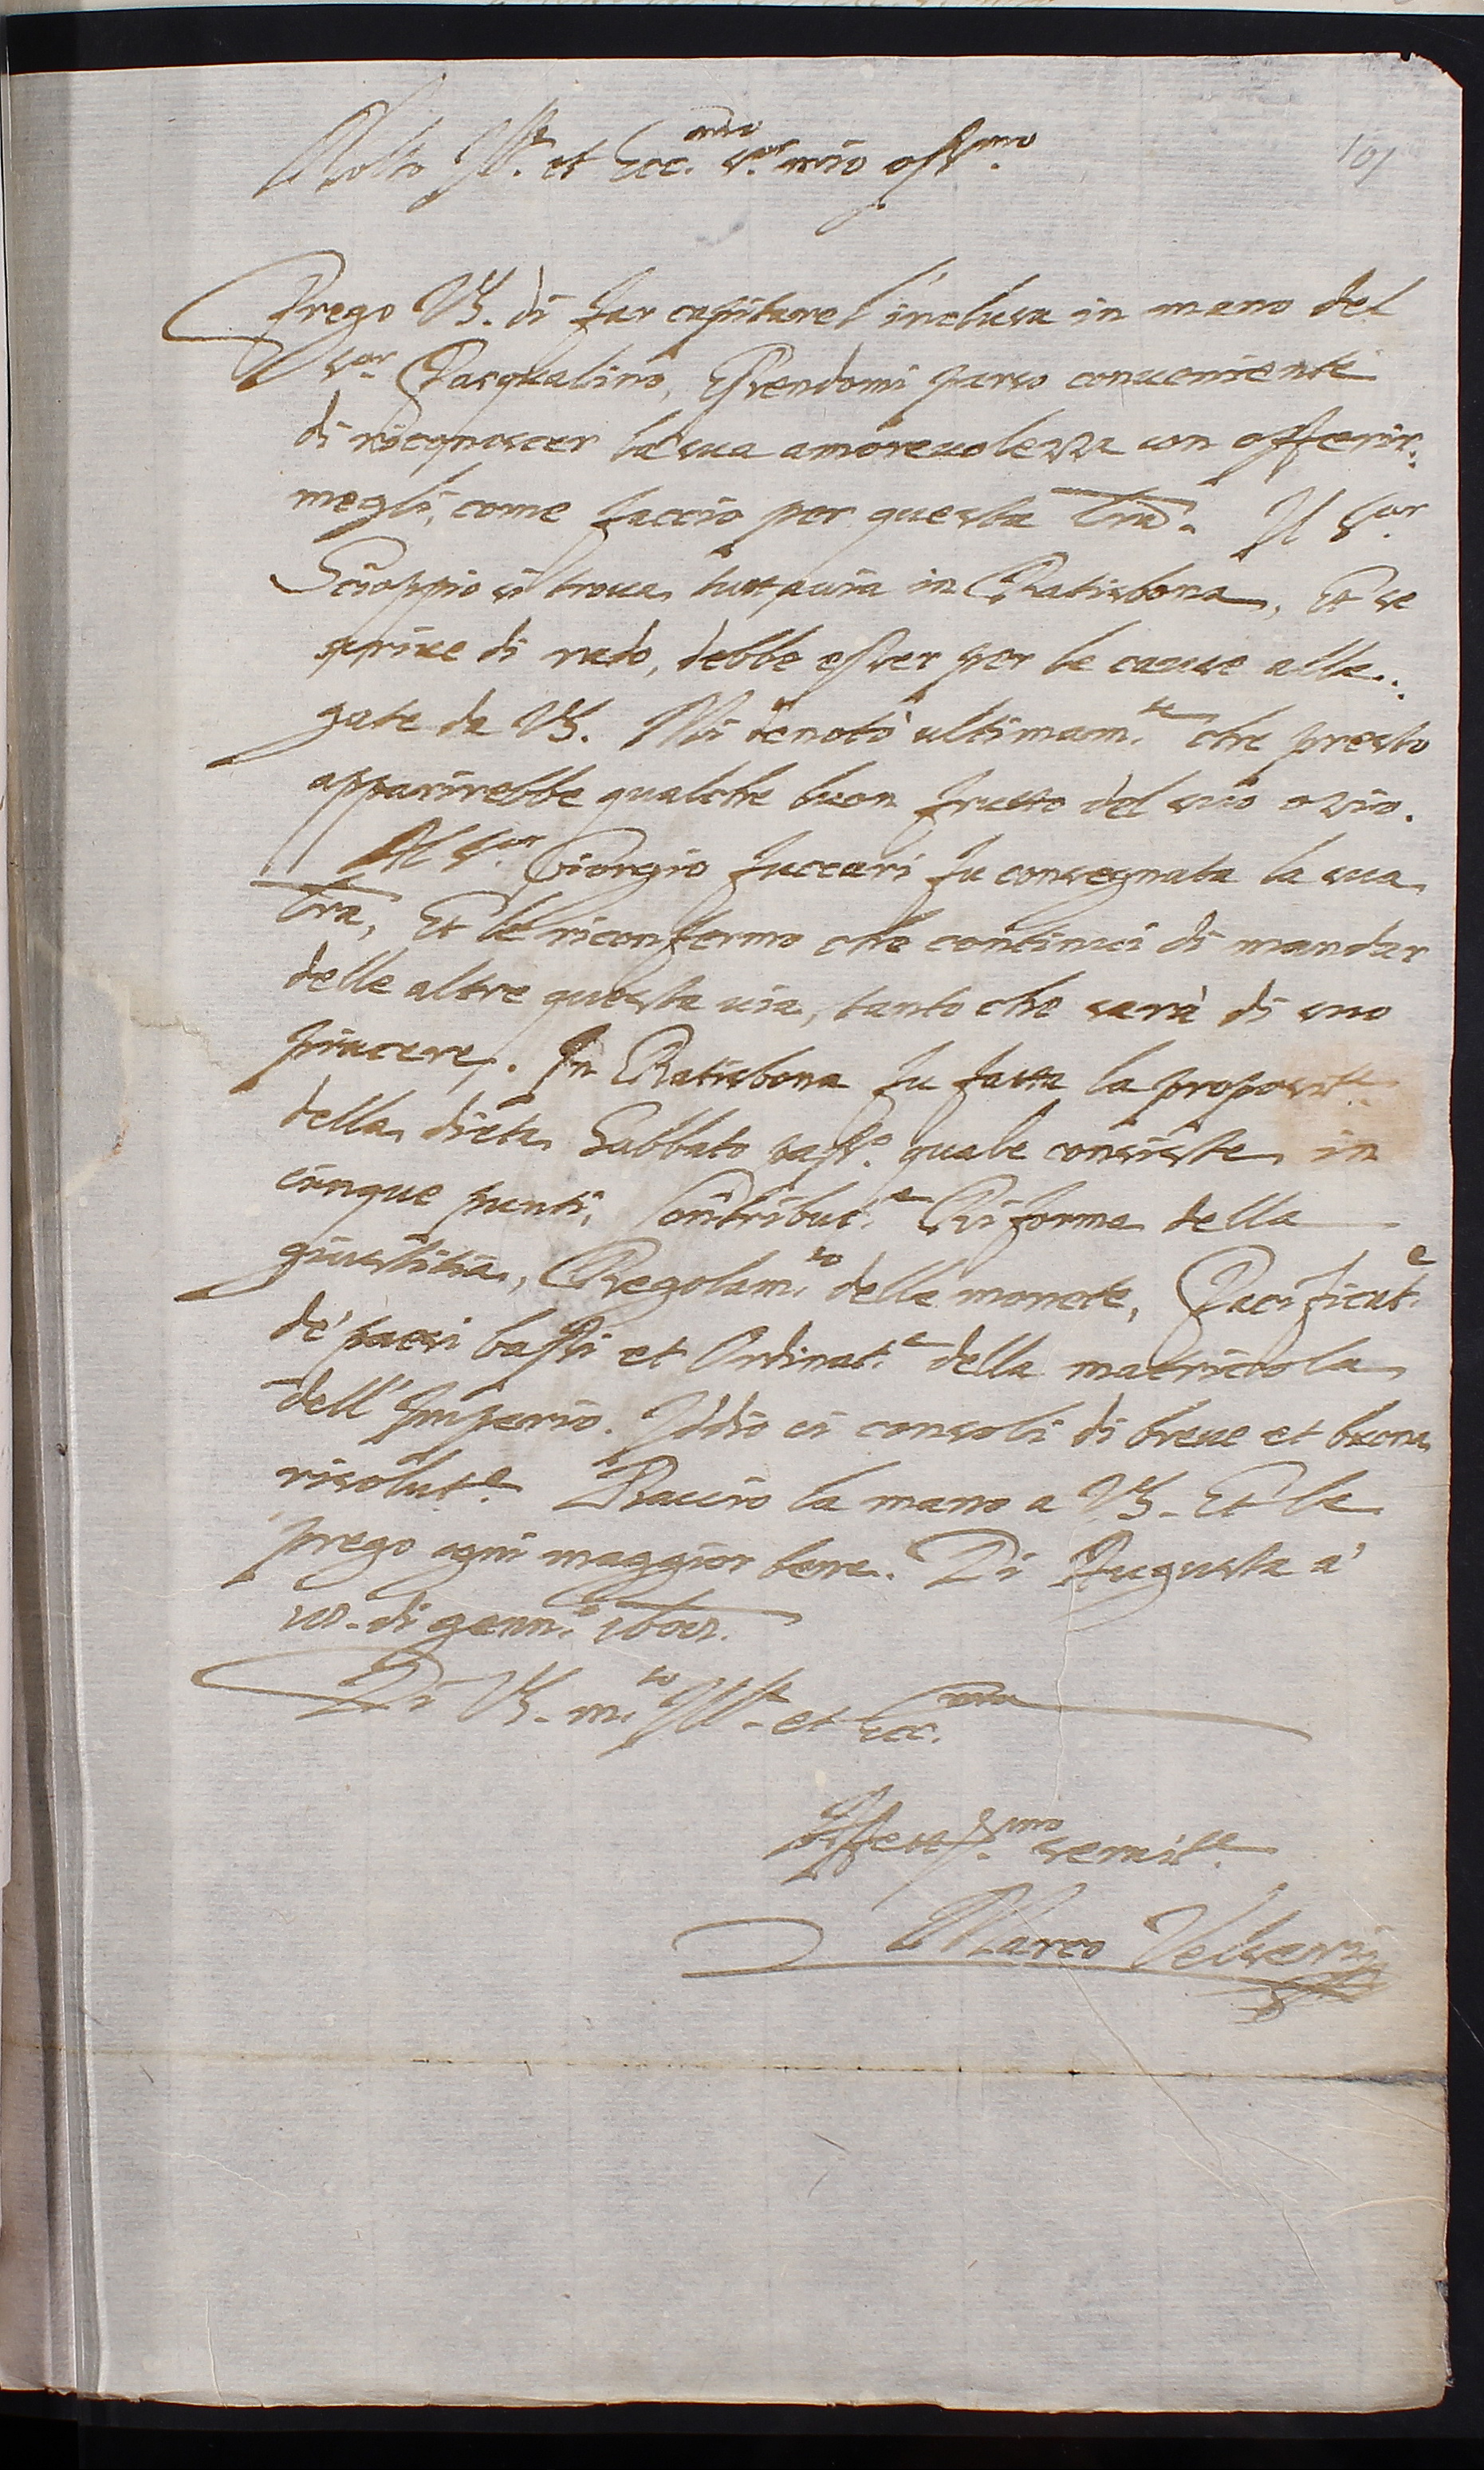 Molto Ill.re et Ecc.mo S.or mio oss.mo
101
Prego VS. di far capitare l'inclusa in mano del
S.or Pasqualino, essendomi parso conueniente
di ricognoscer la sua amoreuolezza con offerir-
megli, come faccio per questa lra. Il S.or
Scioppio si troua tuttauia in Ratisbona, Et se
scriue di rado, debbe esser per le cause alle-
gate da VS. Mi denotò ultimam.te che presto
apparirebbe qualche buon frutto del suo ozio.
Al S.or Giorgio Fuccari fu consegnata la sua
lra, Et le riconfermo che continui di mandar
delle altre questa uia, tanto che sarà di suo
piacere. In Ratisbona fu fatta la proposit.e
della dieta Sabbato pass.o quale consiste in
cinque punti, Contribut.e Riforma della
giustitia, Regolam.to delle monete, Pacificat.e
de' paesi bassi et Ordinat.e della matricola
dell'Imperio. Iddio ci consoli di breue et buona
risolut.e Baccio la mano a VS. Et le
prego ogni maggior bene. Di Augusta a'
di genn.o
Di VS. m.to Ill.re et Ecc.ma
Affett.mo seruit.e
Marco Velseri